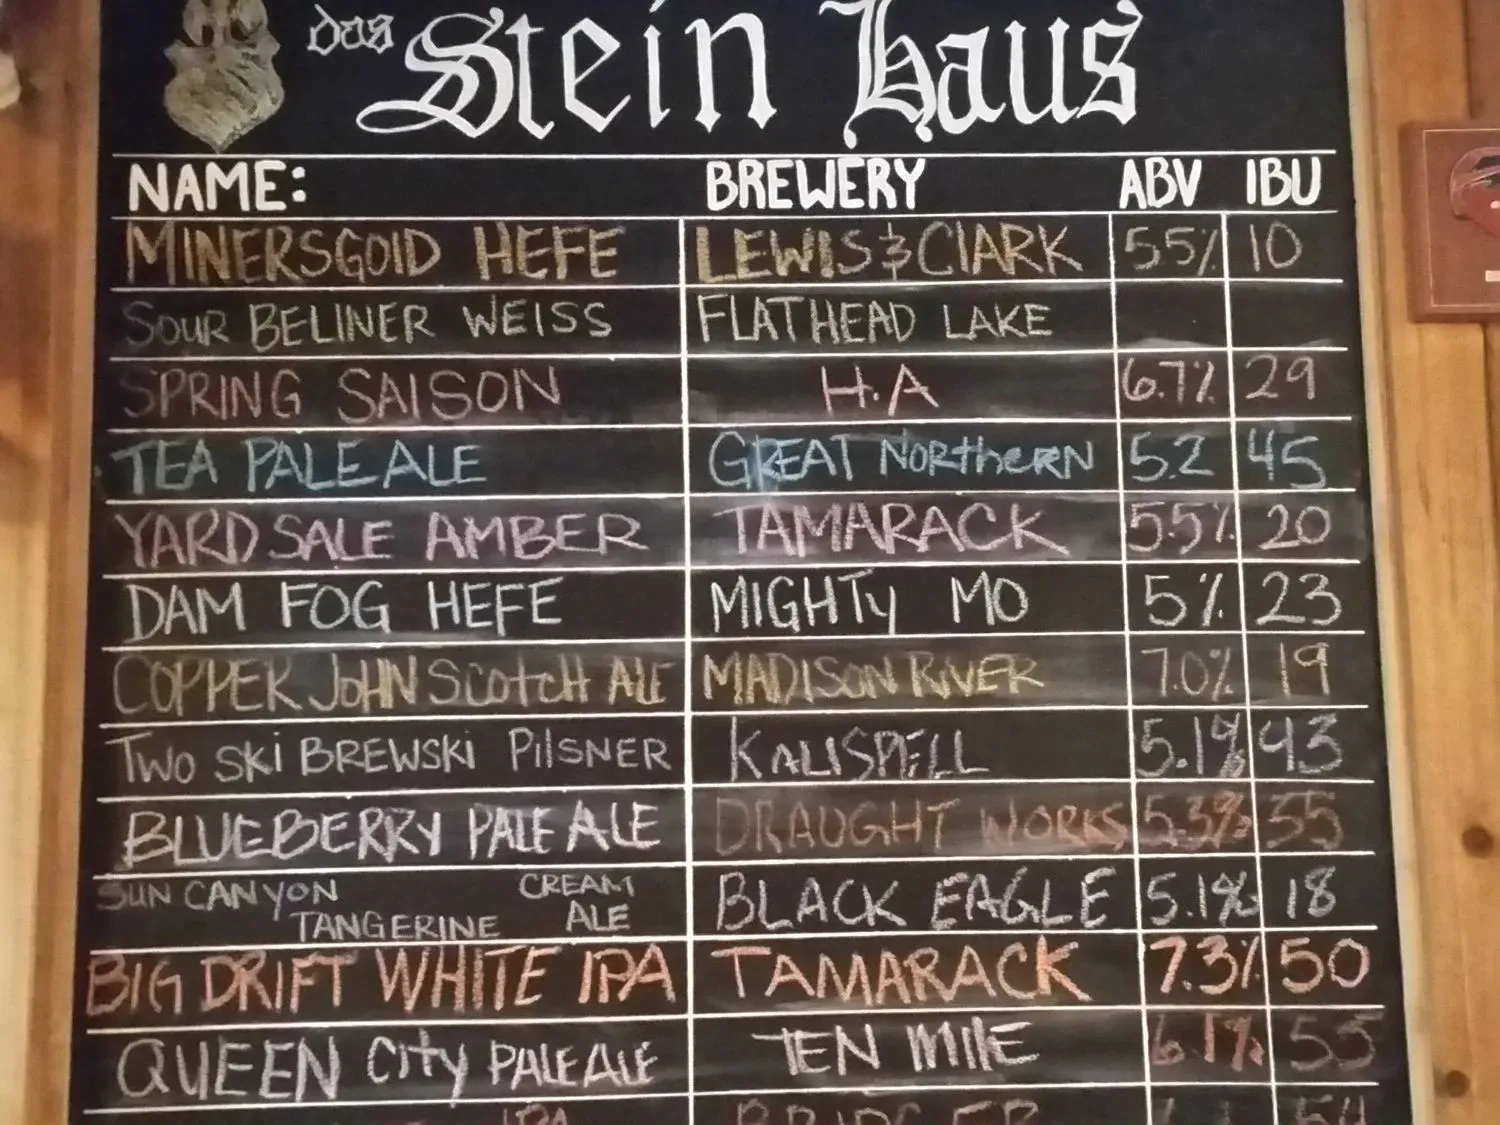 das Stein Haus
NAME: BREWERY ABV IBU
MINERSGOLD HEFE LEWIS & CLARK 5.5% 10
SOUR BELINER WEISS FLATHEAD LAKE
SPRING SAISON H.A 6.7% 29
TEA PALE ALE GREAT NORTHERN 5.2 45
YARD SALE AMBER TAMARACK 5.5% 20
DAM FOG HEFE MIGHTY MO 5% 23
COPPER JOHN SCOTCH ALE MADISON RIVER 7.0% 19
TWO SKI BREWSKI PILSNER KALISPELL 5.1% 43
BLUEBERRY PALE ALE DRAUGHT WORKS 5.3% 35
SUN CANYON TANGERINE CREAM ALE BLACK EAGLE 5.1% 18
BIG DRIFT WHITE IPA TAMARACK 7.3% 50
QUEEN CITY PALE ALE TEN MILE 6.1% 55
IPA BRIDGER 54